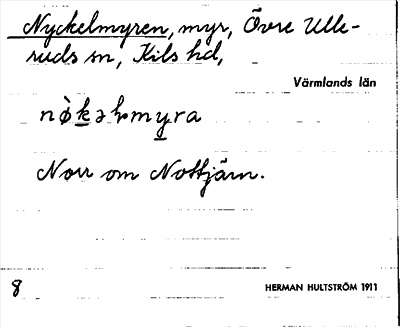 Nyckelmyren, myr, Övre Ulle-
ruds sn, Kils hd,
Värmlands län
Norr om Nottjärn.
8 HERMAN HULTSTRÖM 1911